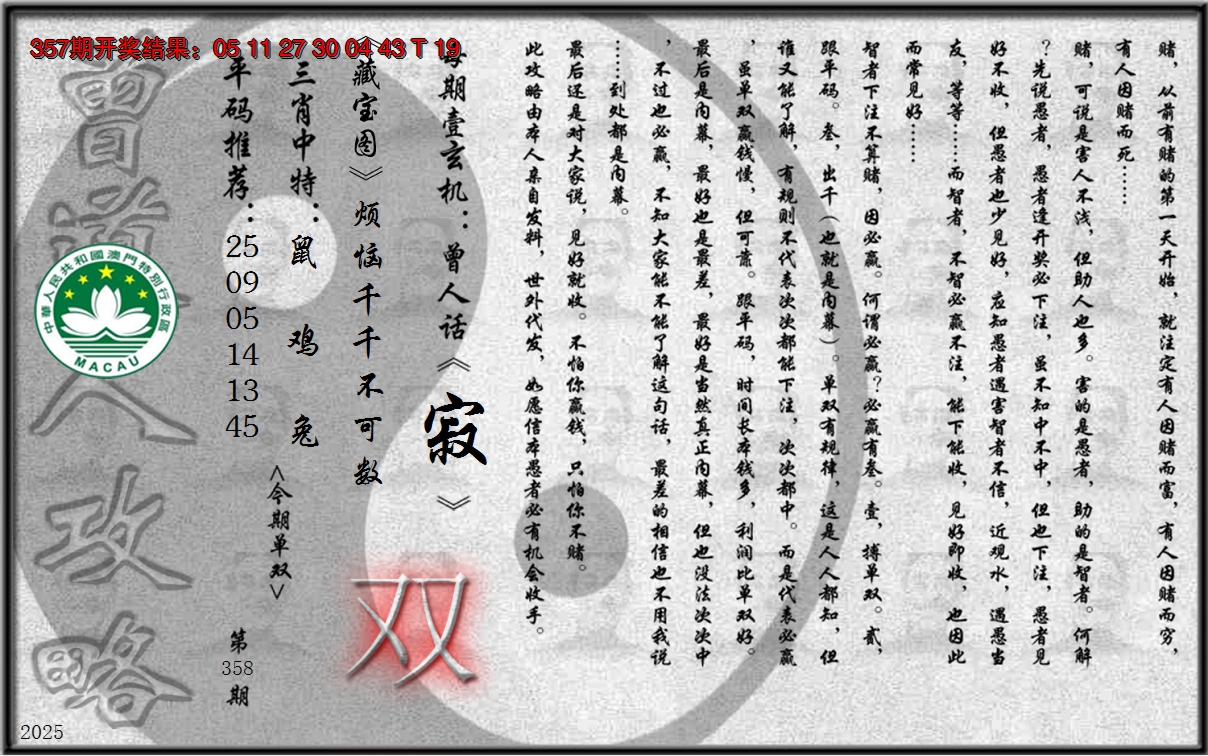 357期开奖结果：05 11 27 30 04 43 T 19
赌，从前有赌的第一天开始，就注定有人因赌而富，有人因赌而穷，
有人因赌而死……
赌，可说是害人不浅，但助人也多。害的是愚者，助的是智者。何解
？先说愚者，愚者逢开奖必下注，虽不知中不中，但也下注，愚者见
好不收，但愚者也少见好，应知愚者遇害智者不信，近观水，遇愚当
友，等等……而智者，不智必赢不注，能下能收，见好即收，也因此
而常见好……
智者下注不算赌，因必赢。何谓必赢？必赢有叁。壹，搏单双。贰，
跟平码。叁，出千（也就是内幕）。单双有规律，这是人人都知，但
谁又能了解，有规则不代表次次都能下注，次次都中。而是代表必赢
，虽单双赢钱慢，但可靠。跟平码，时间长本钱多，利润比单双好。
最后是内幕，最好也是最差，最好是当然真正内幕，但也没法次次中
，不过也必赢，不知大家能不能了解这句话，最差的相信也不用我说
……到处都是内幕。
最后还是对大家说，见好就收。不怕你赢钱，只怕你不赌。
此攻略由本人亲自发料，世外代发，如愿信本愚者必有机会收手。
每期壹玄机：曾人话《寂》
《藏宝图》烦恼千千不可数
三肖中特：鼠 鸡 兔
<今期单双>
双
平码推荐：
25
09
05
14
13
45
第
358
期
曾道人攻略
中華人民共和國澳門特別行政區
MACAU
2025